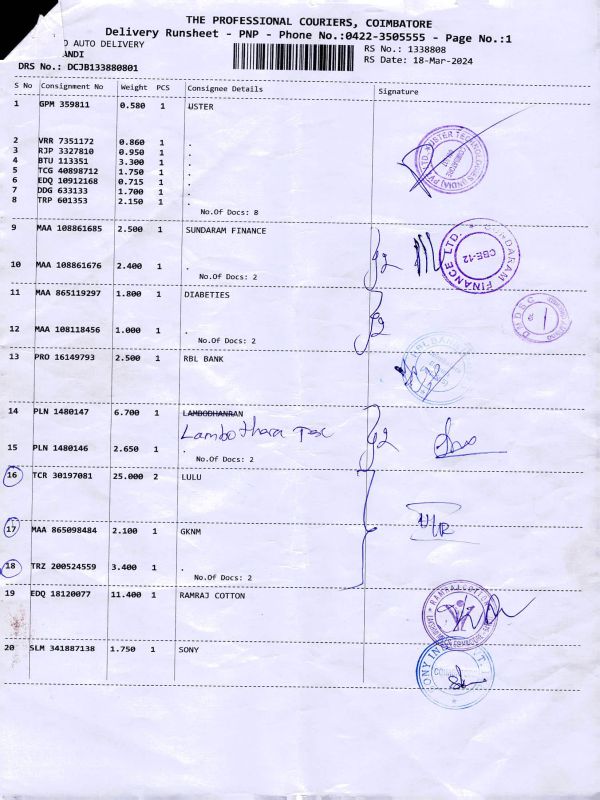 THE PROFESSIONAL COURIERS, COIMBATORE
Delivery Runsheet - PNP - Phone No.:0422-3505555 - Page No.:1
D AUTO DELIVERY RS No.: 1338808
ANDI RS Date: 18-Mar-2024
DRS No.: DCJB133880801
S No Consignment No Weight PCS Consignee Details Signature
1 GPM 359811 0.580 1 USTER
2 VRR 7351172 0.860 1 .
3 RJP 3327810 0.950 1 .
4 BTU 113351 3.300 1 .
5 TCG 40898712 1.750 1 .
6 EDQ 10912168 0.715 1 .
7 DDG 633133 1.700 1 .
8 TRP 601353 2.150 1 .
No.Of Docs: 8
9 MAA 108861685 2.500 1 SUNDARAM FINANCE
10 MAA 108861676 2.400 1 .
No.Of Docs: 2
11 MAA 865119297 1.800 1 DIABETIES
12 MAA 108118456 1.000 1 .
No.Of Docs: 2
13 PRO 16149793 2.500 1 RBL BANK
14 PLN 1480147 6.700 1 LAMBODHANRAN
Lambothara
15 PLN 1480146 2.650 1 .
No.Of Docs: 2
16 TCR 30197081 25.000 2 LULU
N/R
17 MAA 865098484 2.100 1 GKNM
18 TRZ 200524559 3.400 1 .
No.Of Docs: 2
19 EDQ 18120077 11.400 1 RAMRAJ COTTON
RAMRAJ COTTON
20 SLM 341887138 1.750 1 SONY